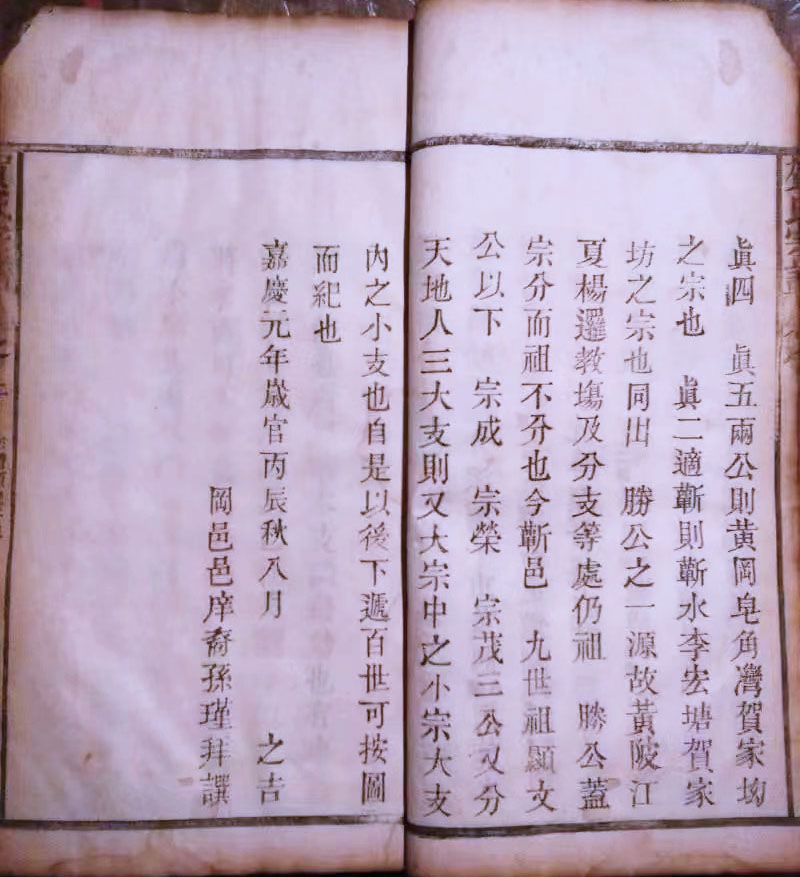 眞四　眞五兩公則黃岡皂角灣賀家坳
之宗也　眞二適蘄則蘄水李宏塘賀家
坊之宗也同出　勝公之一源故黃陂江
夏楊邏教塲及分支等處仍祖　勝公蓋
宗分而祖不分也今蘄邑　九世祖顯文
公以下　宗成　宗榮　宗茂三公又分
天地人三大支則又大宗中之小宗大支
內之小支也自是以後下遞百世可按圖
而紀也
嘉慶元年歲官丙辰秋八月　之吉
岡邑邑庠裔孫瑾拜譔